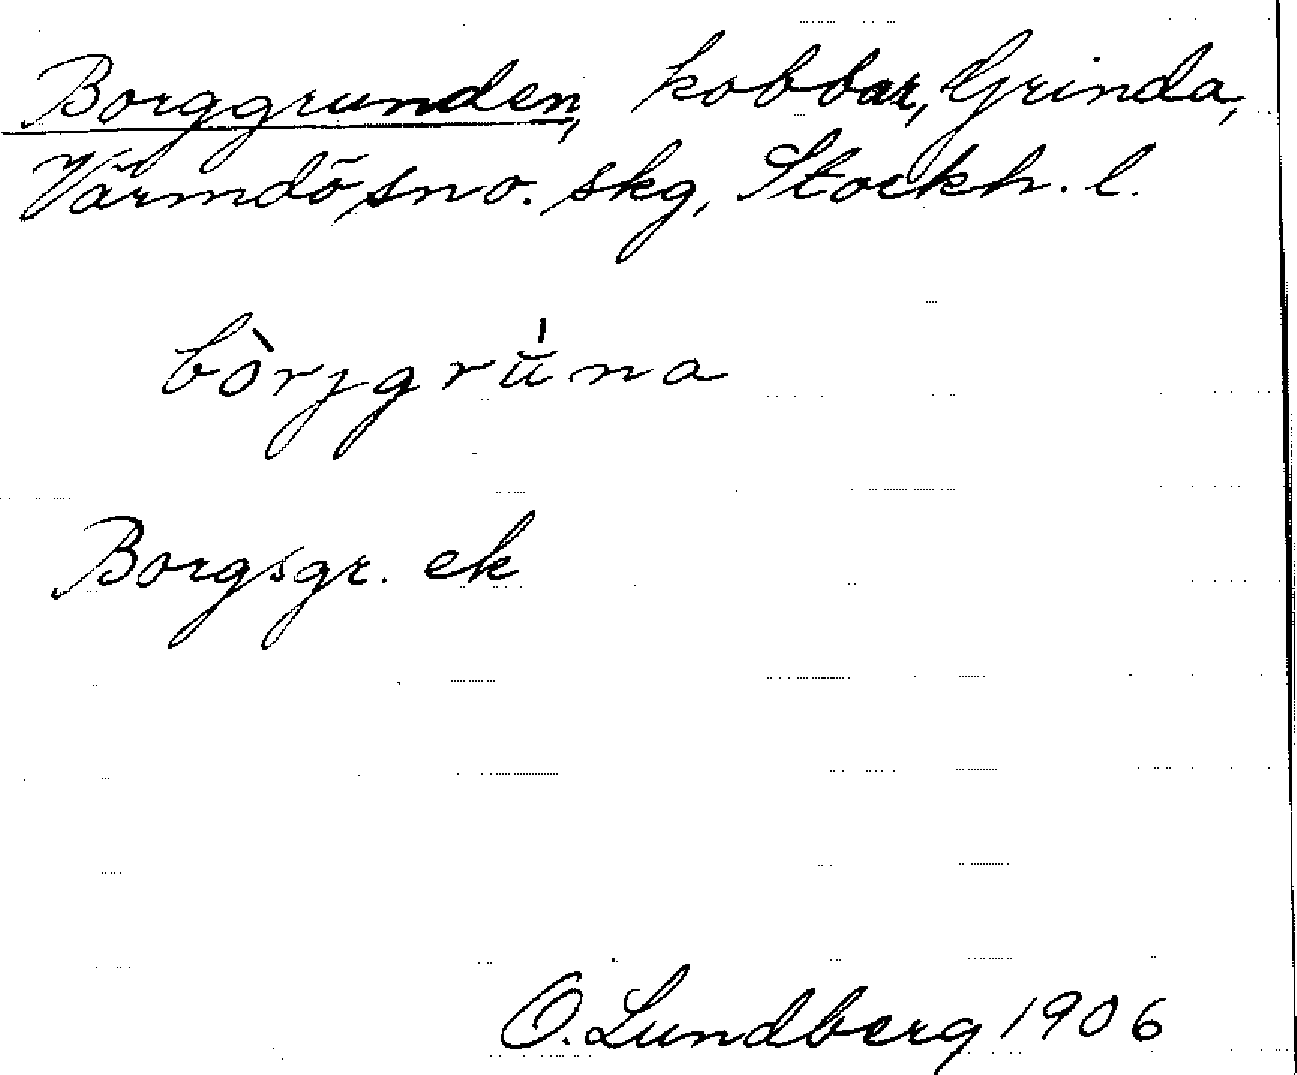 Borggrunden, kobbar, Grinda,
Värmdö sno. skg, Stockh. l.
bòrjgrŭ́na
Borgsgr. ek
O. Lundberg 1906